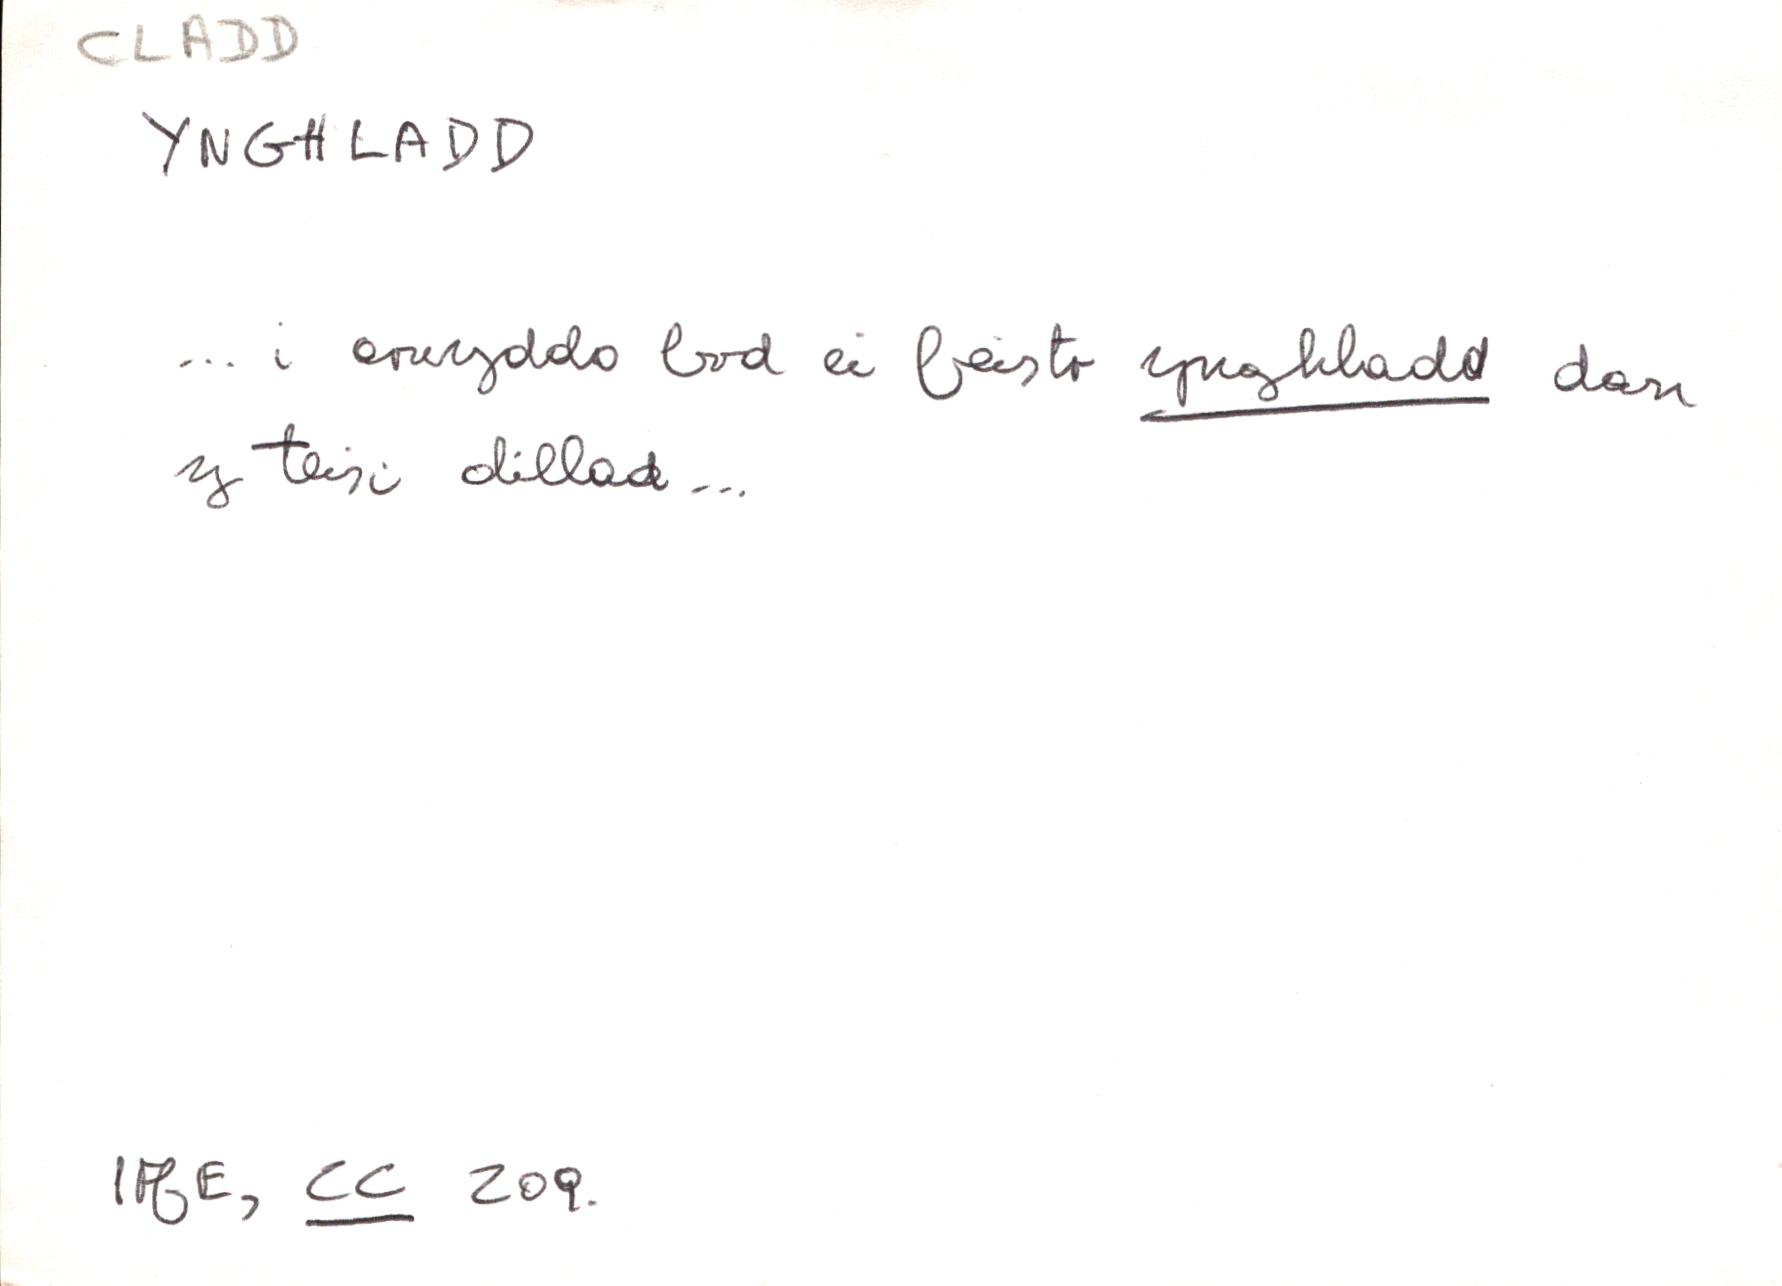 CLADD
YNGHLADD
... i arwyddo bod ei feistr ynghladd dan
y teisi dillad ...
E, CC 209.